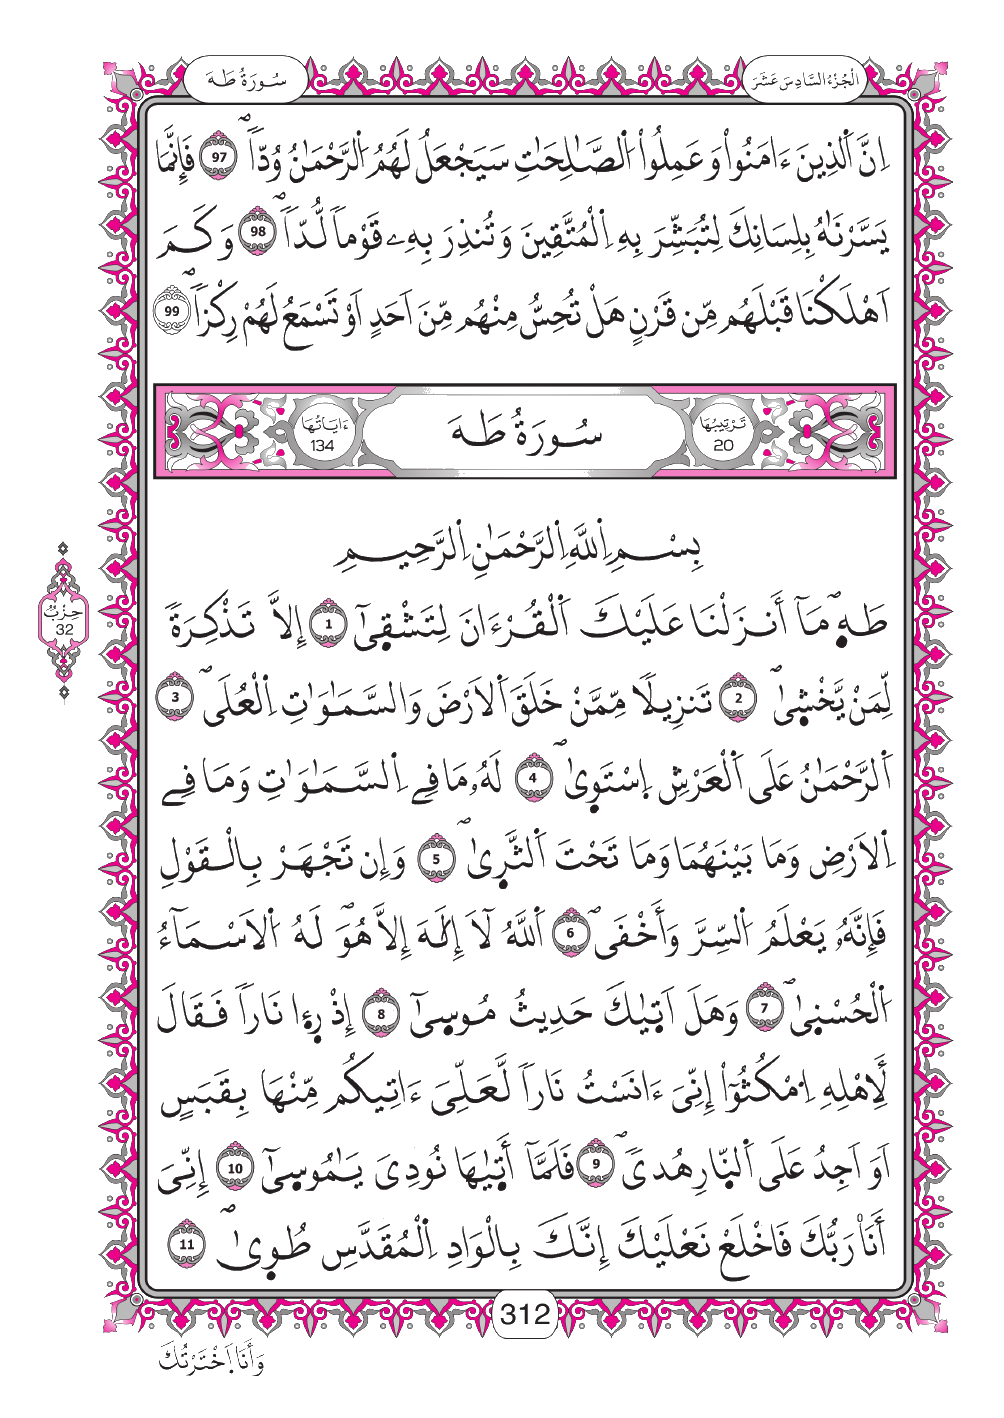 سُورَةُ طَهَ
اَلْجُزْءُ السَّادِسَ عَشَرَ
اِنَّ اَ۬لذِينَ ءَامَنُواْ وَعَمِلُواْ اُ۬لصَّٰلِحَٰتِ سَيَجْعَلُ لَهُمُ اُ۬لرَّحْمَٰنُ وُدّاٗۖ 97 فَإِنَّمَا
يَسَّرْنَٰهُ بِلِسَانِكَ لِتُبَشِّرَ بِهِ اِ۬لْمُتَّقِينَ وَتُنذِرَ بِهِۦ قَوْماٗ لُّدّاٗۖ 98 وَكَمَ
اَهْلَكْنَا قَبْلَهُم مِّن قَرْنٍ هَلْ تُحِسُّ مِنْهُم مِّنَ اَحَدٍ اَوْ تَسْمَعُ لَهُمْ رِكْزاٗۖ 99
تَرْتِيبُهَا
20
سُورَةُ طَهَ
ءَايَاتُهَا
134
بِسْمِ اِ۬للَّهِ اِ۬لرَّحْمَٰنِ اِ۬لرَّحِيمِ
طَهِۖ مَآ أَنزَلْنَا عَلَيْكَ اَ۬لْقُرْءَانَ لِتَشْقٜىٰٓ 1 إِلَّا تَذْكِرَةٗ
لِّمَنْ يَّخْشٜىٰۖ 2 تَنزِيلاٗ مِّمَّنْ خَلَقَ اَ۬لَارْضَ وَالسَّمَٰوَٰتِ اِ۬لْعُلَىۖ 3
اَ۬لرَّحْمَٰنُ عَلَى اَ۬لْعَرْشِ اِ۪سْتَوٜىٰۖ 4 لَهُۥ مَا فِے اِ۬لسَّمَٰوَٰتِ وَمَا فِے
اِ۬لَارْضِ وَمَا بَيْنَهُمَا وَمَا تَحْتَ اَ۬لثَّرٜىٰۖ 5 وَإِن تَجْهَرْ بِالْقَوْلِ
فَإِنَّهُۥ يَعْلَمُ اُ۬لسِّرَّ وَأَخْفَىۖ 6 اَ۬للَّهُ لَآ إِلَٰهَ إِلَّا هُوَۖ لَهُ اُ۬لَاسْمَآءُ
اُ۬لْحُسْنٜىٰۖ 7 وَهَلَ اَتٜيٰكَ حَدِيثُ مُوسٜىٰٓ 8 إِذْ رِءٜا نَاراٗ فَقَالَ
لِأَهْلِهِ اِ۟مْكُثُوٓاْ إِنِّيَ ءَانَسْتُ نَاراٗ لَّعَلِّيَ ءَاتِيكُم مِّنْهَا بِقَبَسٍ
اَوَ اَجِدُ عَلَى اَ۬لنّ۪ارِ هُدىٗۖ 9 فَلَمَّآ أَتٜيٰهَا نُودِيَ يَٰمُوسٜىٰٓ 10 إِنِّيَ
أَنَا رَبُّكَ فَاخْلَعْ نَعْلَيْكَ إِنَّكَ بِالْوَادِ اِ۬لْمُقَدَّسِ طُوٜىٰۖ 11
حِزْبُ
32
312
وَأَنَا اَ۪خْتَرْتُكَ